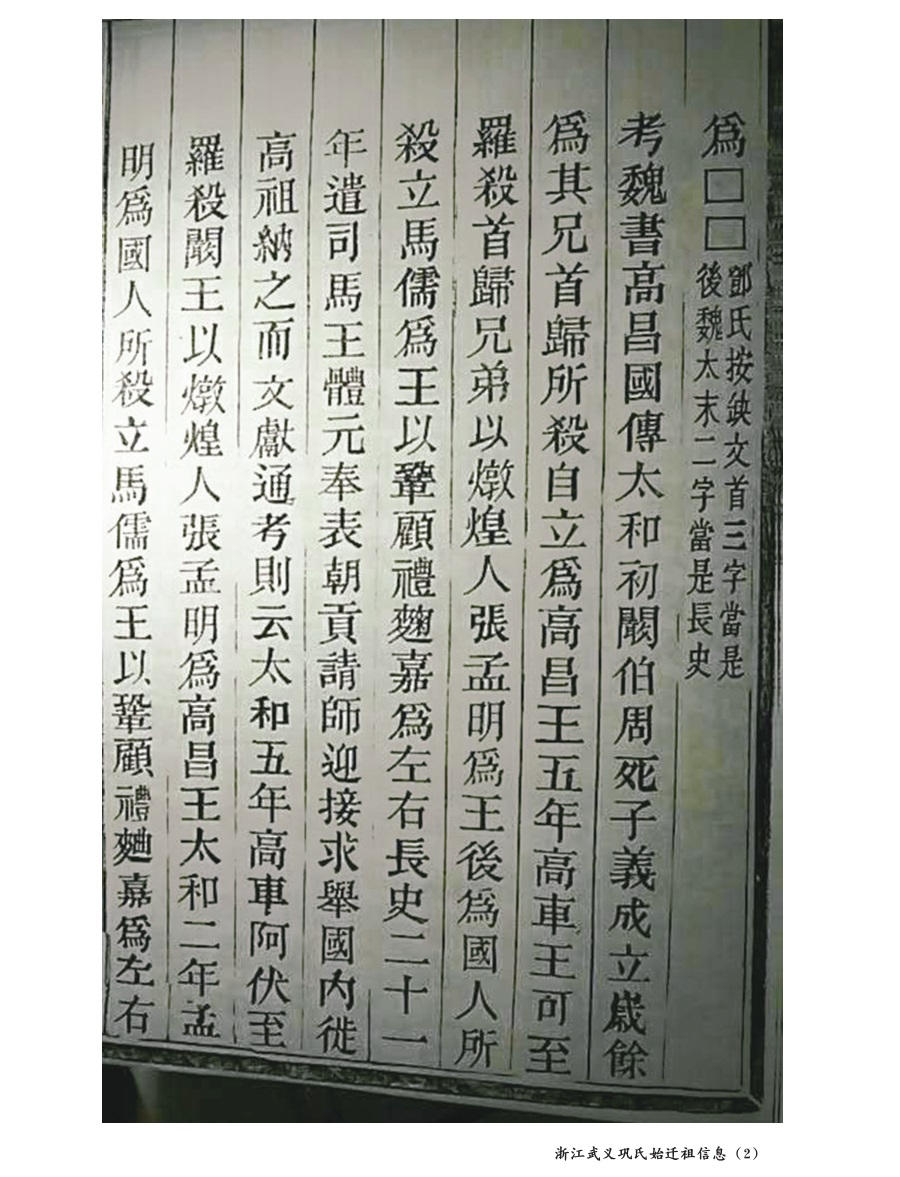 爲□□
鄧氏按缺文首三字當是
後魏太末二字當是長史
考魏書高昌國傳太和初闞伯周死子義成立歲餘
爲其兄首歸所殺自立爲高昌王五年高車王可至
羅殺首歸兄弟以燉煌人張孟明爲王後爲國人所
殺立馬儒爲王以鞏顧禮麴嘉爲左右長史二十一
年遣司馬王體元奉表朝貢請師迎接求舉國內徙
高祖納之而文獻通考則云太和五年高車阿伏至
羅殺闞王以燉煌人張孟明爲高昌王太和二年孟
明爲國人所殺立馬儒爲王以鞏顧禮麴嘉爲左右
浙江武义巩氏始迁祖信息（2）